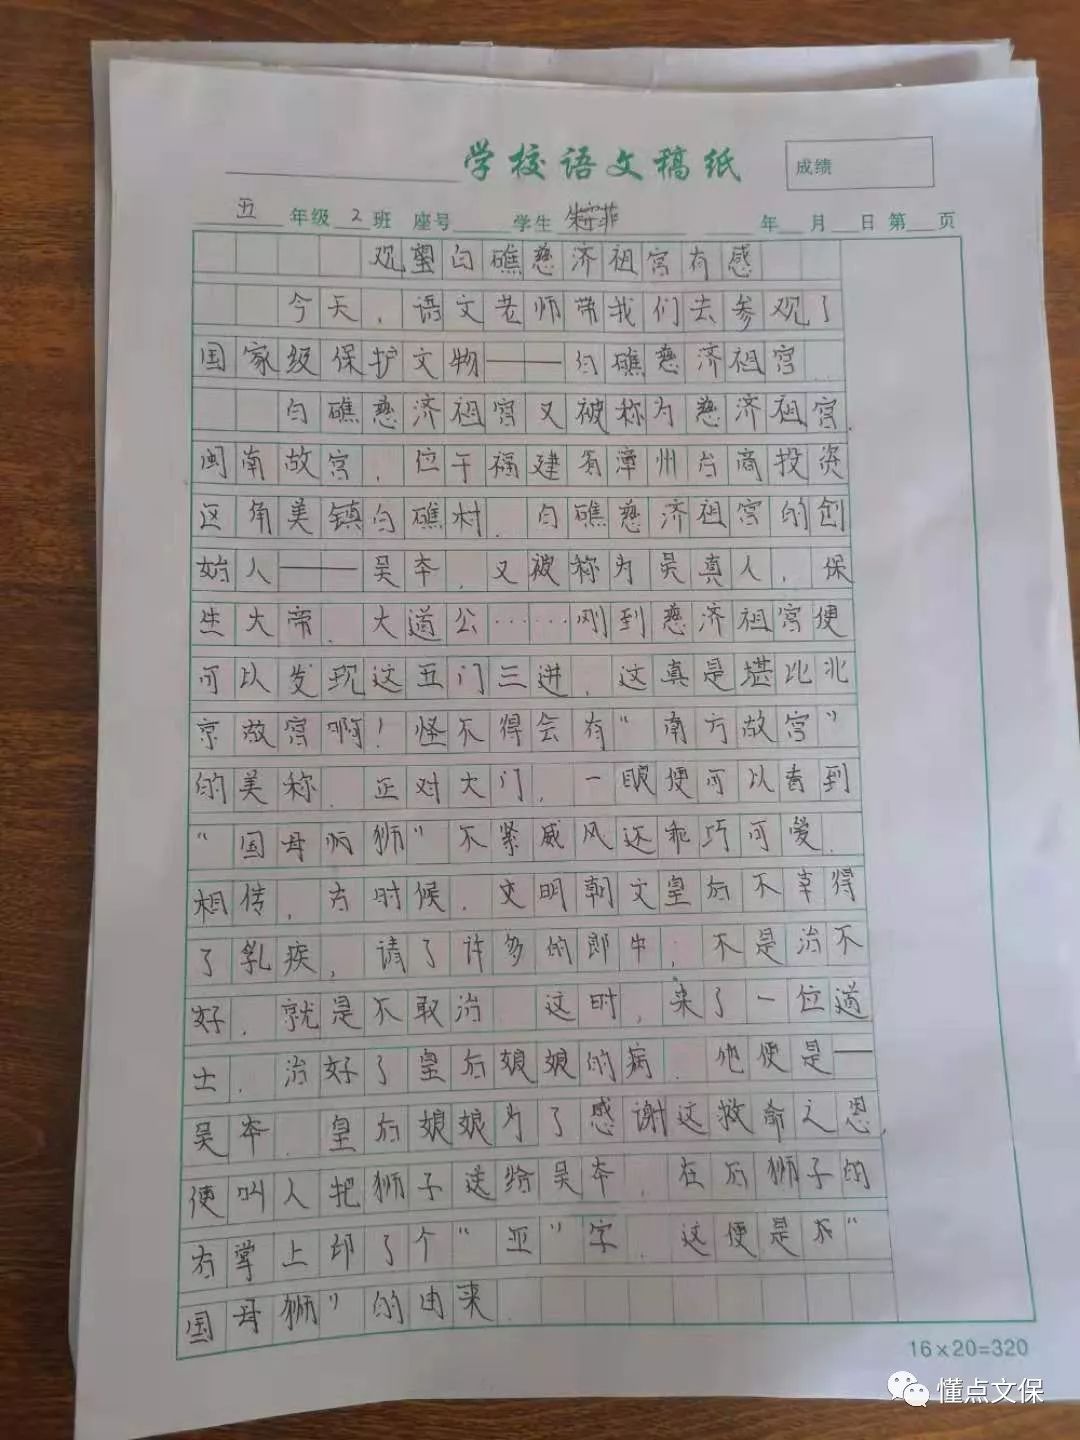 学校语文稿纸
成绩
五 年级 2 班 座号 学生 年 月 日 第 页
观望白礁慈济祖宫有感
今天，语文老师带我们去参观了
国家级保护文物——白礁慈济祖宫.
白礁慈济祖宫又被称为慈济祖宫.
闽南故宫，位于福建省漳州台商投资
区角美镇白礁村.白礁慈济祖宫的创
始人——吴夲，又被称为吴真人，保
生大帝、大道公……刚到慈济祖宫便
可以发现这五门三进，这真是堪比北
京故宫啊！怪不得会有“南方故宫”
的美称.正对大门，一眼便可以看到
“国母狮”不紧威风还乖巧可爱.
相传，古时候，文明朝文皇后不幸得
了乳疾，请了许多的郎中，不是治不
好，就是不敢治.这时，来了一位道
士，治好了皇后娘娘的病.他便是—
吴夲.皇后娘娘为了感谢这救命之恩，
便叫人把狮子送给吴夲，在后狮子的
右掌上印了个“亚”字.这便是“
国母狮”的由来.
16×20=320
懂点文保